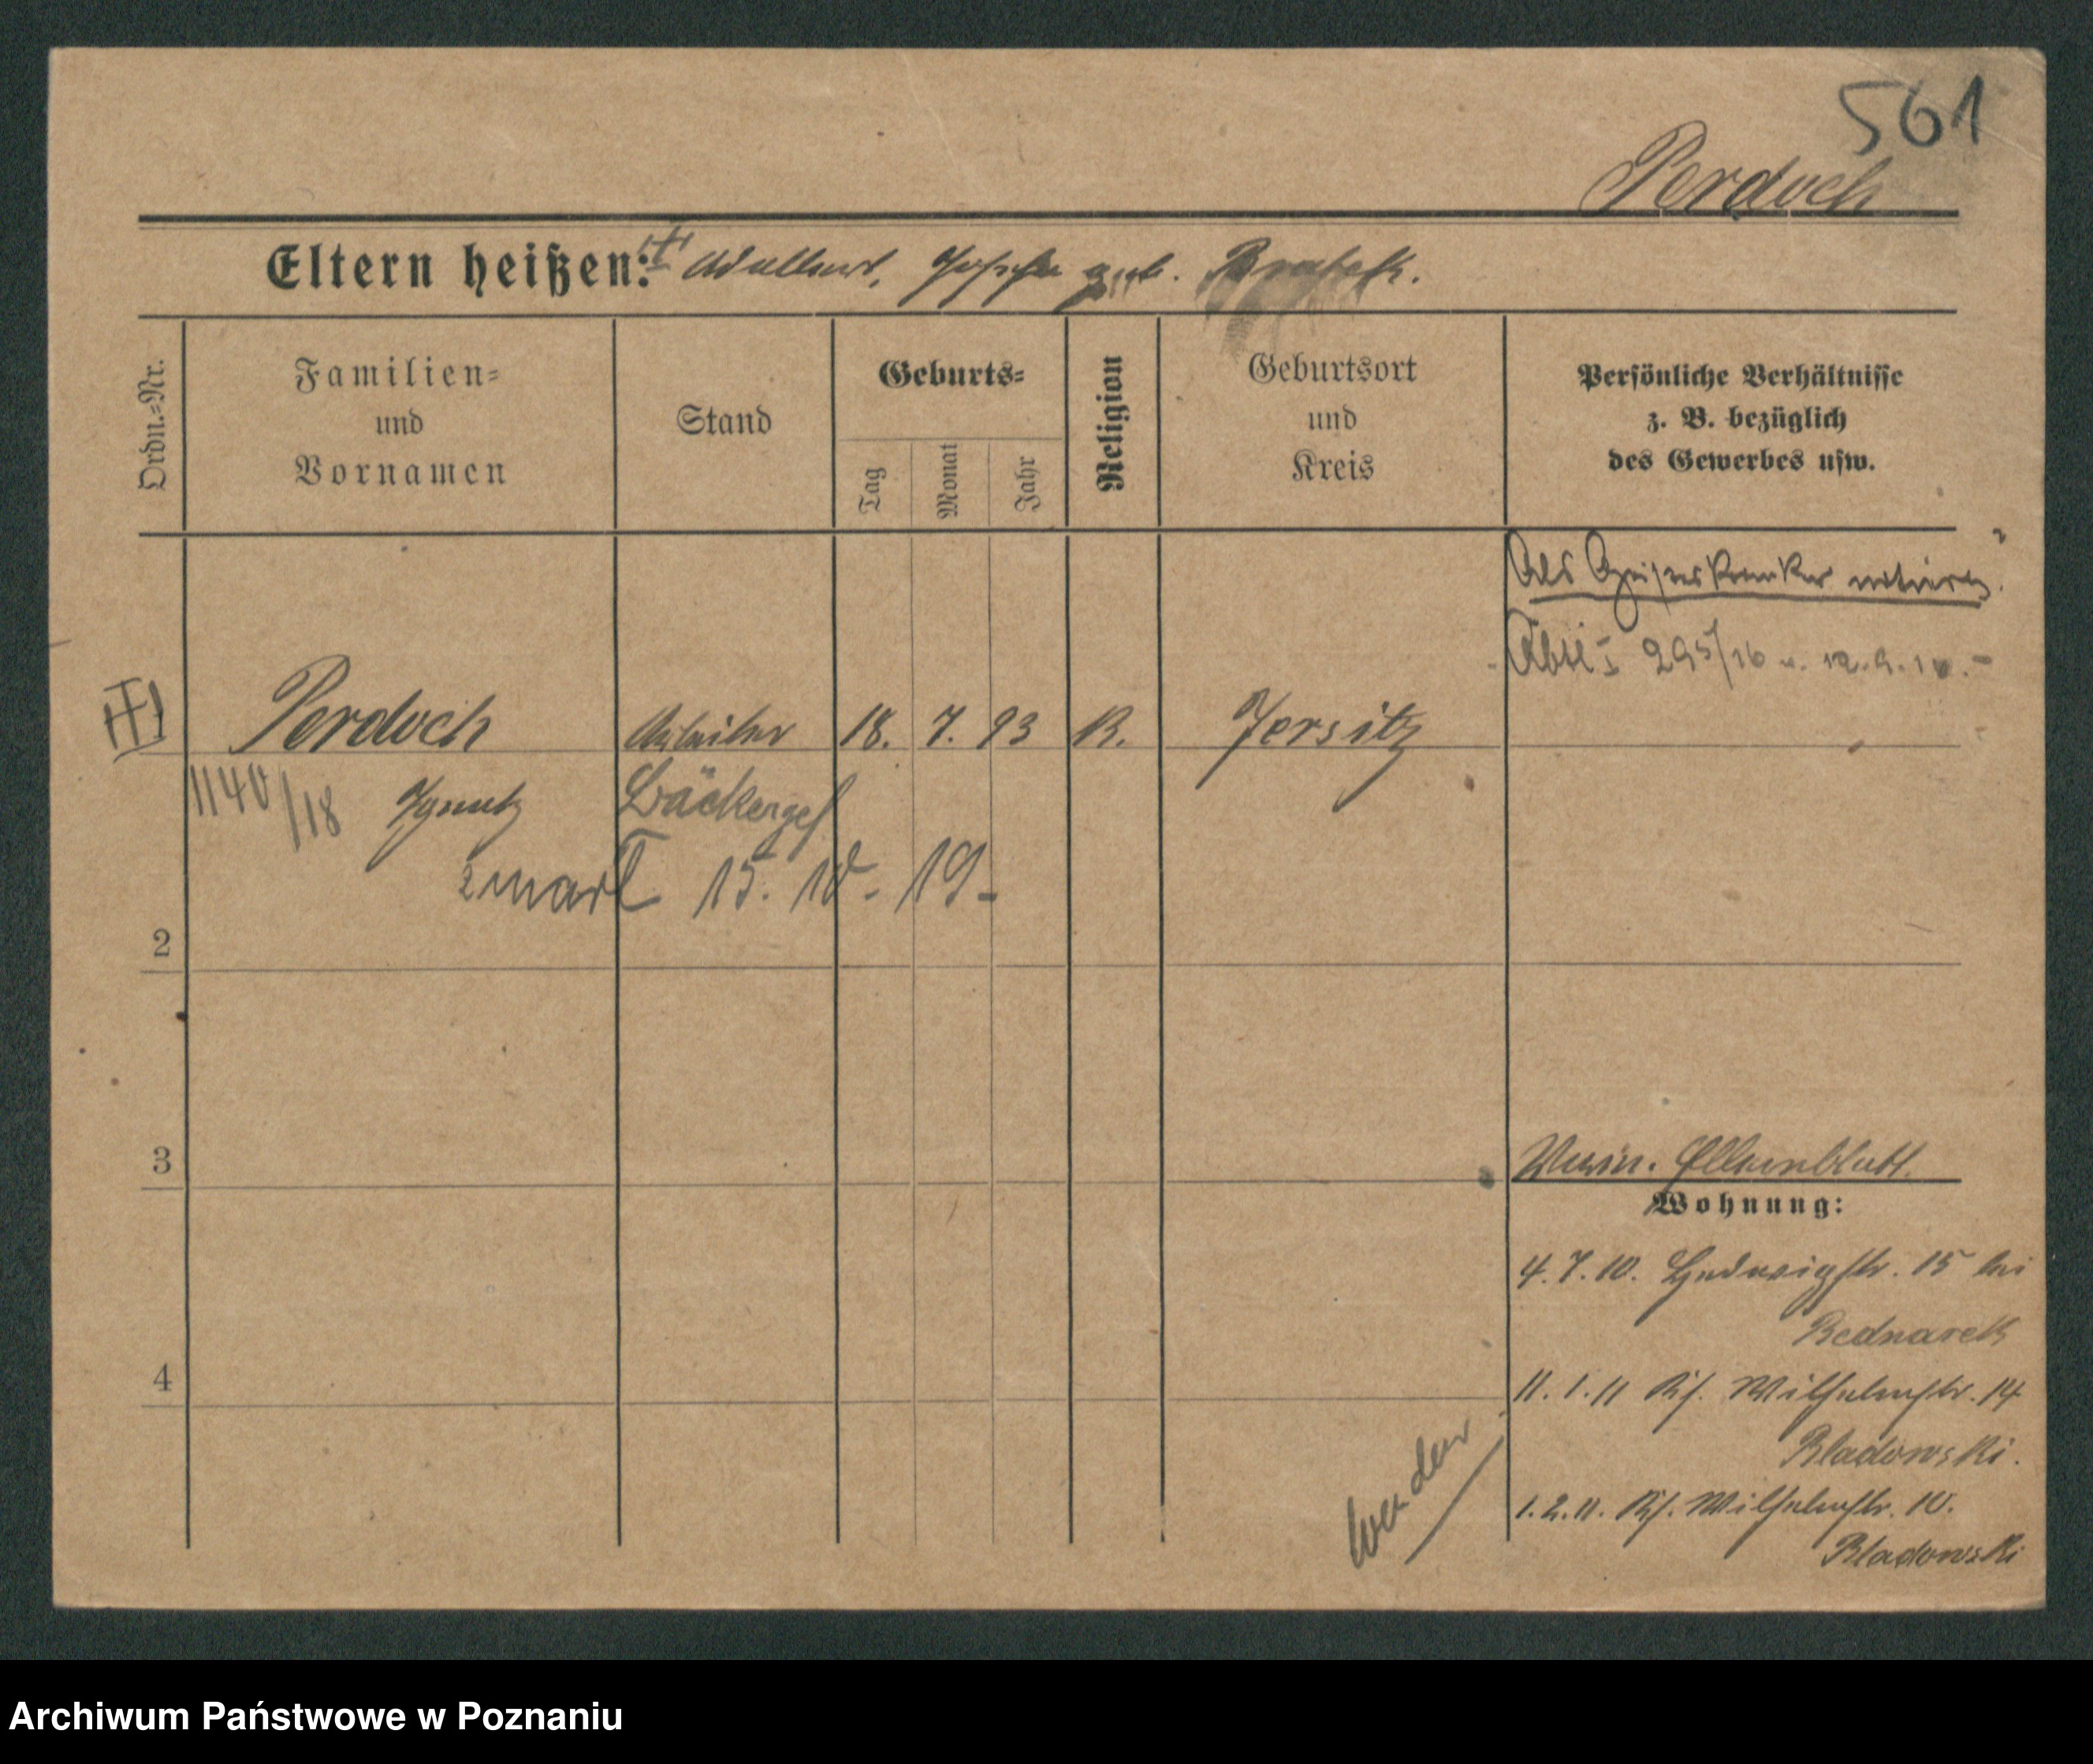 561
Perdoch
Eltern heißen: Adalbert, Josefa geb. Bratek.
Ordn.=Nr.
Familien=
und
Vornamen
Stand
Geburts=
Tag
Monat
Jahr
Religion
Geburtsort
und
Kreis
Persönliche Verhältnisse
z. B. bezüglich
des Gewerbes usw.
Als Geisteskranker notiert
Abtl. I 295/16 v. 12.9.16.
Perdoch Arbeiter 18. 7. 93 K. Jersitz
1140/18 Ignatz Bäckerges
zmarł 15. 10. 19
2
3
4
Elternblatt.
Wohnung:
4.7.10. Hedwigstr. 15 bei
Bednarek
11.1.11 Ks. Wilhelmstr. 14
Bladowski.
1.2.11. Ks. Wilhelmstr. 10.
Bladowski
wenden
Archiwum Państwowe w Poznaniu